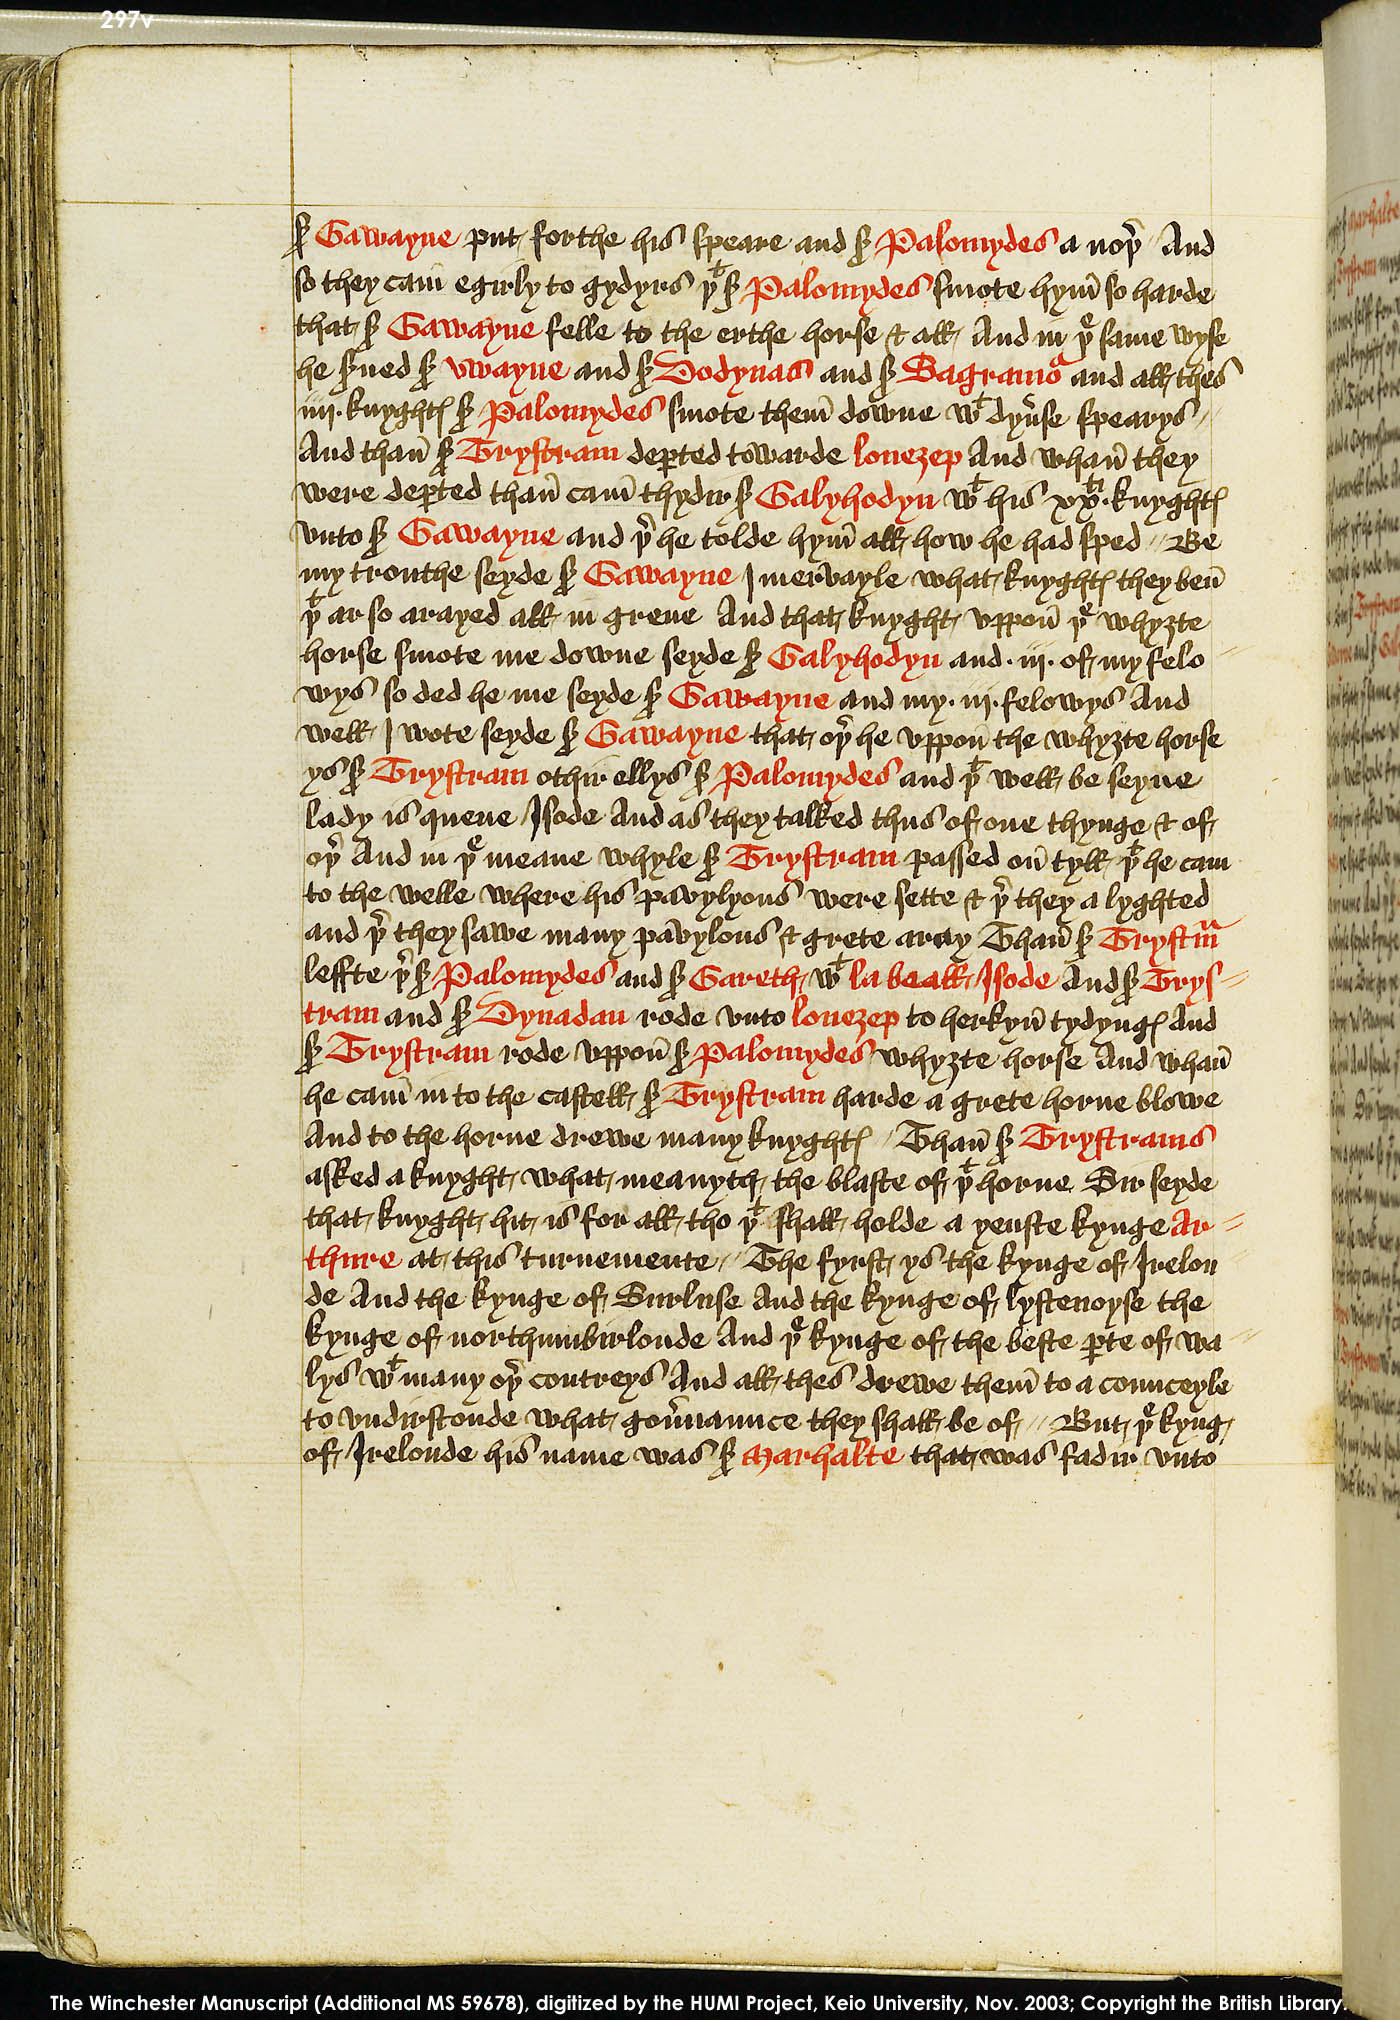 297v
sͬ Gawayne put forthe his speare and sͬ Palomydes a noþͬ // And
so they cam̄ egirly to gydyrs þᵗ sͬ Palomydes smote hym̄ so harde
that sͬ Gawayne felle to the erthe horse & all And in þᵉ same wyse
he sͬued sͬ vwayne and sͬ Dodynas and sͬ Sagramoͬ and all thes
iiij. knyghtꝭ sͬ Palomydes smote them̄ downe wᵗ dyuͬse spearys //
And than̄ sͬ Trystram deꝑted towarde lonezep And whan̄ they
were deꝑted than̄ cam̄ thydir sͬ Galyhodyn wᵗ his xxᵗⁱ. knyghtꝭ
vnto sͬ Gawayne and þͬ he tolde hym̄ all how he had sped // Be
my trouthe seyde sͬ Gawayne I mervayle what knyghtꝭ they ben̄
þᵗ ar so arayed all in grene And that knyght vppon̄ þᵉ whyzte
horse smote me downe seyde sͬ Galyhodyn and .iij. of my felo //
wys so ded he me seyde sͬ Gawayne and my .iij. felowys And
well I wote seyde sͬ Gawayne that oþͬ he vppon̄ the whyzte horse
ys sͬ Trystram othir ellys sͬ Palomydes and þᵗ well be seyne
lady is quene Isode And as they talked thus of one thynge & of
oþͬ And in þᵉ meane whyle sͬ Trystram passed on̄ tyll þᵗ he cam
to the welle where his pavylyons were sette & þͬ they a lyghted
and þͬ they sawe many pavylons & grete aray Than̄ sͬ Trystᵃm
leffte þͬ sͬ Palomydes and sͬ Gareth wᵗ la beall Isode And sͬ Trys //
tram and sͬ Dynadan rode vnto lonezep to herkyn̄ tydyngꝭ And
sͬ Trystram rode vppon̄ sͬ Palomydes whyzte horse And whan̄
he cam̄ in to the castell sͬ Trystram harde a grete horne blowe
And to the horne drewe many knyghtꝭ // Than̄ sͬ Trystrams
asked a knyght what meanyth the blaste of þᵗ horne Sir seyde
that knyght hit is for all tho þᵗ shall holde a yenste kynge Ar //
thure at this turnemente // The fyrst ys the kynge of Irelon
de And the kynge of Surluse And the kynge of lystenoyse the
kynge of northumbirlonde And þᵉ kynge of the beste ꝑte of wa //
lys wᵗ many oþͬ contreys And all thes drewe them̄ to a counceyle
to vndirstonde what gouͬnaunce they shall be of // But þᵉ kyng
of Irelonde his name was sͬ Marhalte that was fadir vnto
The Winchester Manuscript (Additional MS 59678), digitized by the HUMI Project, Keio University, Nov. 2003; Copyright the British Library.